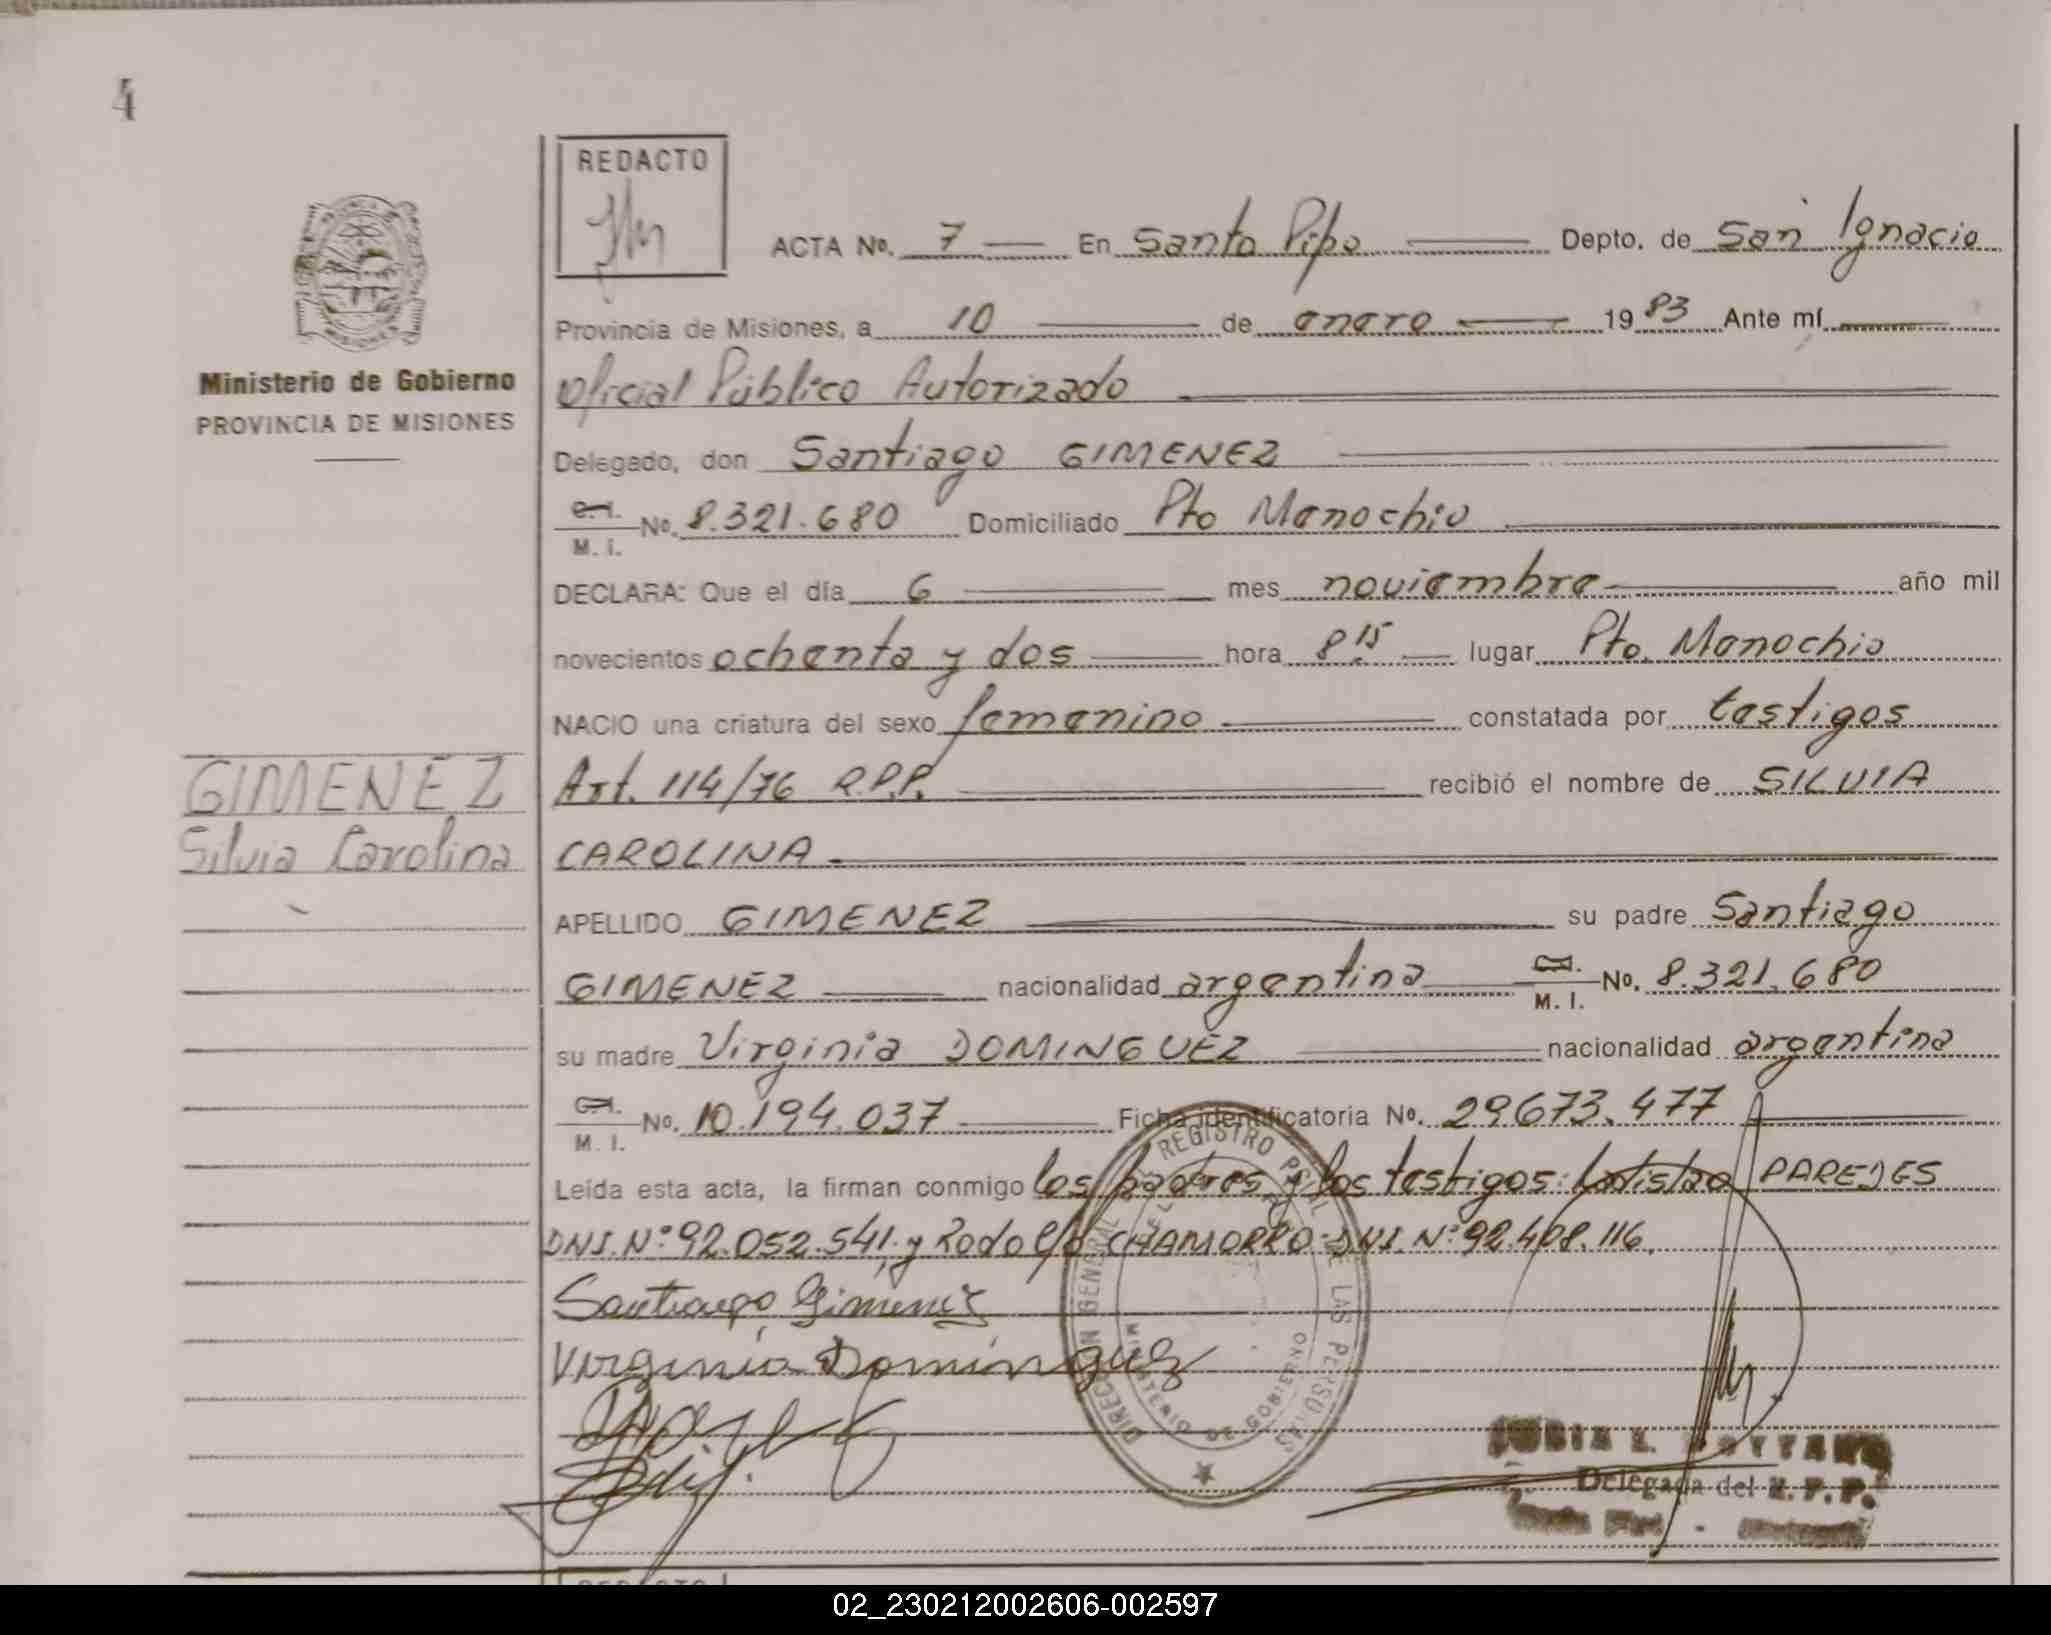 4
REDACTO
ACTA No. 7 En Santo Pipo Depto. de San Ignacio
Provincia de Misiones, a 10 de enero 1983 Ante mí
Oficial Público Autorizado
Delegado, don Santiago GIMENEZ
C.I. M. I. No. 8.321.680 Domiciliado Pto Manochio
DECLARA: Que el día 6 mes noviembre año mil
novecientos ochenta y dos hora 8.15 lugar Pto. Manochio
NACIO una criatura del sexo femenino constatada por testigos
Art. 114/76 R.P.P. recibió el nombre de SILVIA
CAROLINA
APELLIDO GIMENEZ su padre Santiago
GIMENEZ nacionalidad argentina C.I. M. I. No. 8.321.680
su madre Virginia DOMINGUEZ nacionalidad argentina
C.I. M. I. No. 10.194.037 Ficha identificatoria No. 29673.477
Leída esta acta, la firman conmigo los padres y los testigos: PAREDES
DNI. Nº 92.052.541. y Rodolfo CHAMORRO DNI. Nº 92.408.116.
Santiago Gimenez
Virginia Dominguez
Ministerio de Gobierno
PROVINCIA DE MISIONES
GIMENEZ
Silvia Carolina
DIRECCION GENERAL DEL REGISTRO PCIAL. DE LAS PERSONAS
MINISTERIO DE GOBIERNO
Delegada del R.P.P.
REDACTO
02_230212002606-002597